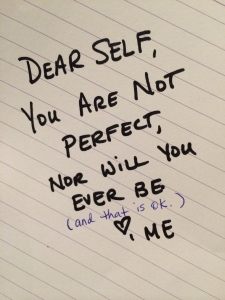 DEAR SELF,
YOU ARE NOT
PERFECT,
NOR WILL YOU
EVER BE
(and that is OK.)
♡, ME